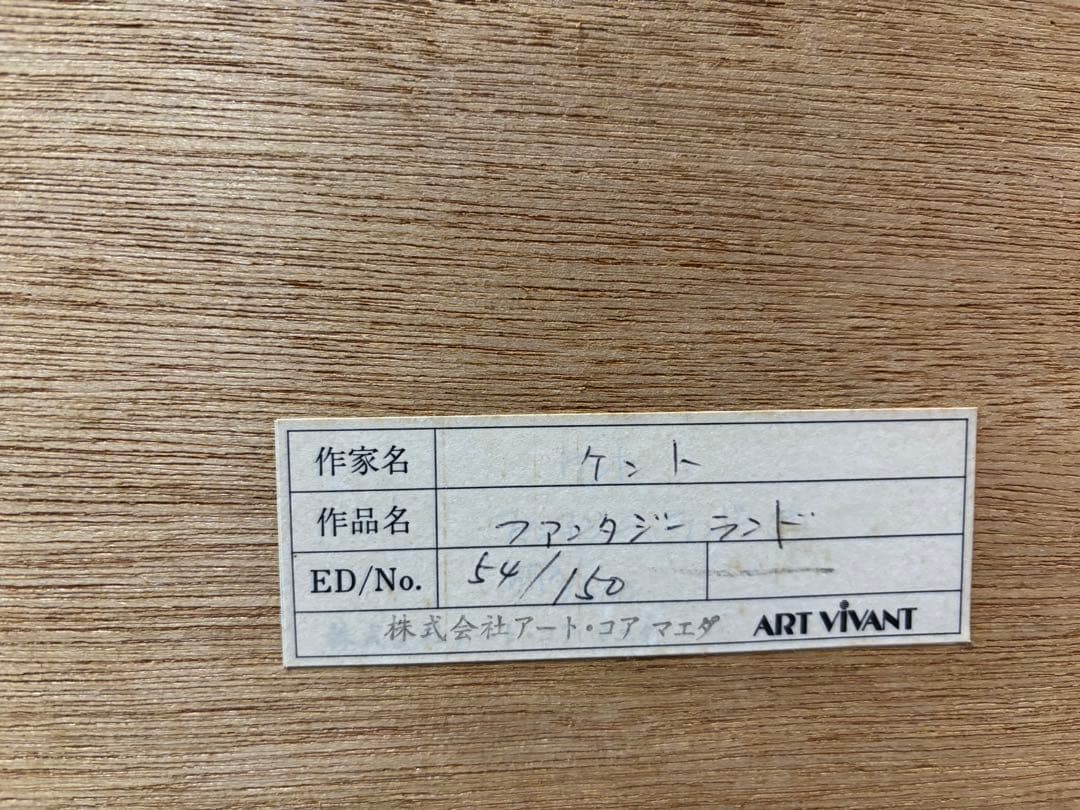 作家名 ケント
作品名 ファンタジーランド
ED/No. 54/150
株式会社アート・コア マエダ ART ViVANT